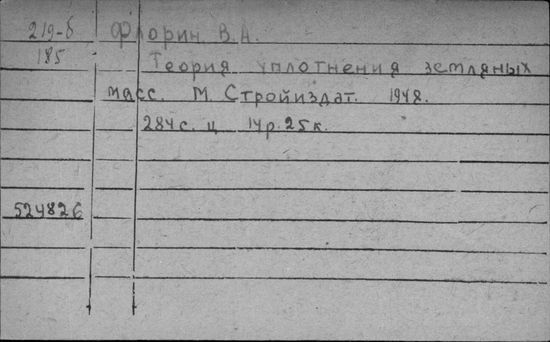 219-б Флорин В.А.
185 Теория уплотнения земляных
масс. М. Стройиздат. 1948.
284с. ц 14р. 25к.
524826